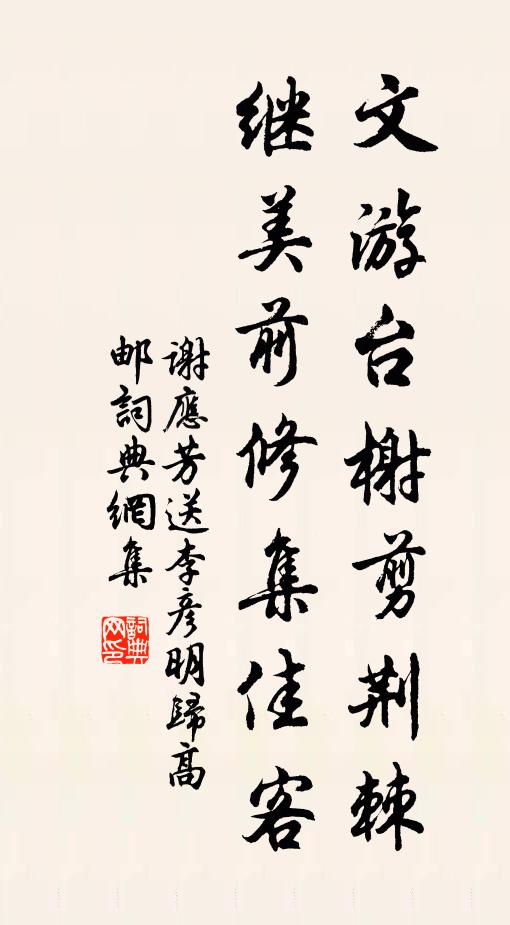 文游台榭剪荆棘
继美前修集佳客
謝應芳送李彦明歸高
邮詞典網集
詞典
网印